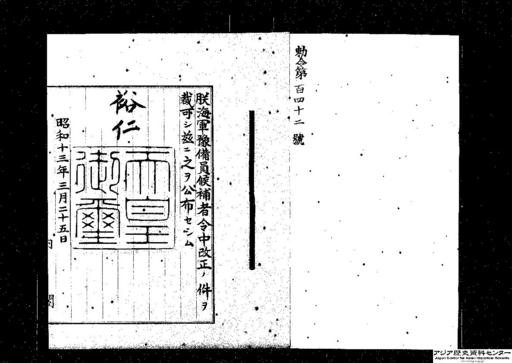 勅令第百四十二號
朕海軍豫備員候補者令中改正ノ件ヲ
裁可シ茲ニ之ヲ公布セシム
裕仁
天皇御璽
昭和十三年三月二十五日
アジア歴史資料センター
Japan Center for Asian Historical Records